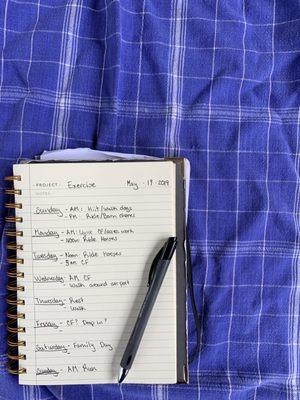 PROJECT: Exercise May 19 2019
NOTES
Sunday - AM: Hiit/walk dogs
- PM: Ride/Barn chores
Monday - AM: CF/ work
- Noon: Ride Horses
Tuesday - Noon: Ride Horses
- CF
Wednesday - AM CF
- Walk around airport
Thursday - Rest
- Walk
Friday - CF? Drop in?
Saturday - Family Day
Sunday - AM Run